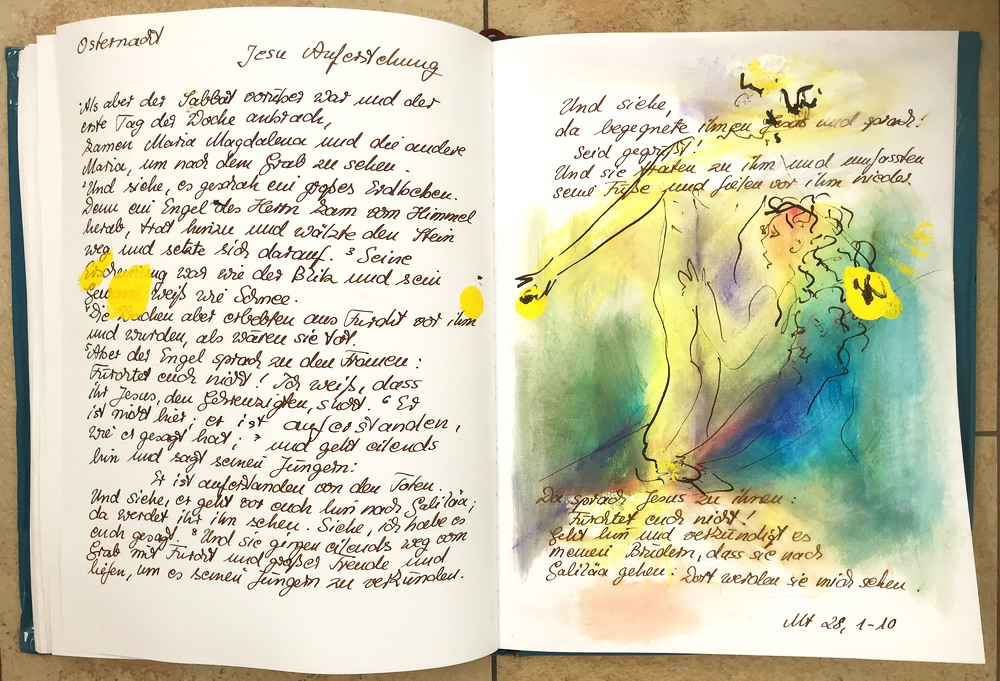 Osternacht
Jesu Auferstehung
¹Als aber der Sabbat vorüber war und der
erste Tag der Woche anbrach,
kamen Maria Magdalena und die andere
Maria, um nach dem Grab zu sehen.
²Und siehe, es geschah ein großes Erdbeben.
Denn ein Engel des Herrn kam vom Himmel
herab, trat hinzu und wälzte den Stein
weg und setzte sich darauf. ³ Seine
Erscheinung war wie der Blitz und sein
Gewand weiß wie Schnee.
⁴Die Wachen aber erbebten aus Furcht vor ihm
und wurden, als wären sie tot.
⁵Aber der Engel sprach zu den Frauen:
Fürchtet euch nicht! Ich weiß, dass
ihr Jesus, den Gekreuzigten, sucht. ⁶ Er
ist nicht hier; er ist auferstanden,
wie er gesagt hat; ⁷ und geht eilends
hin und sagt seinen Jüngern:
Er ist auferstanden von den Toten.
Und siehe, er geht vor euch hin nach Galiläa;
da werdet ihr ihn sehen. Siehe, ich habe es
euch gesagt. ⁸ Und sie gingen eilends weg vom
Grab mit Furcht und großer Freude und
liefen, um es seinen Jüngern zu verkünden.
Und siehe,
da begegnete ihnen Jesus und sprach:
Seid gegrüßt!
Und sie traten zu ihm und umfassten
seine Füße und fielen vor ihm nieder.
Da sprach Jesus zu ihnen:
Fürchtet euch nicht!
Geht hin und verkündigt es
meinen Brüdern, dass sie nach
Galiläa gehen: Dort werden sie mich sehen.
Mt 28, 1-10